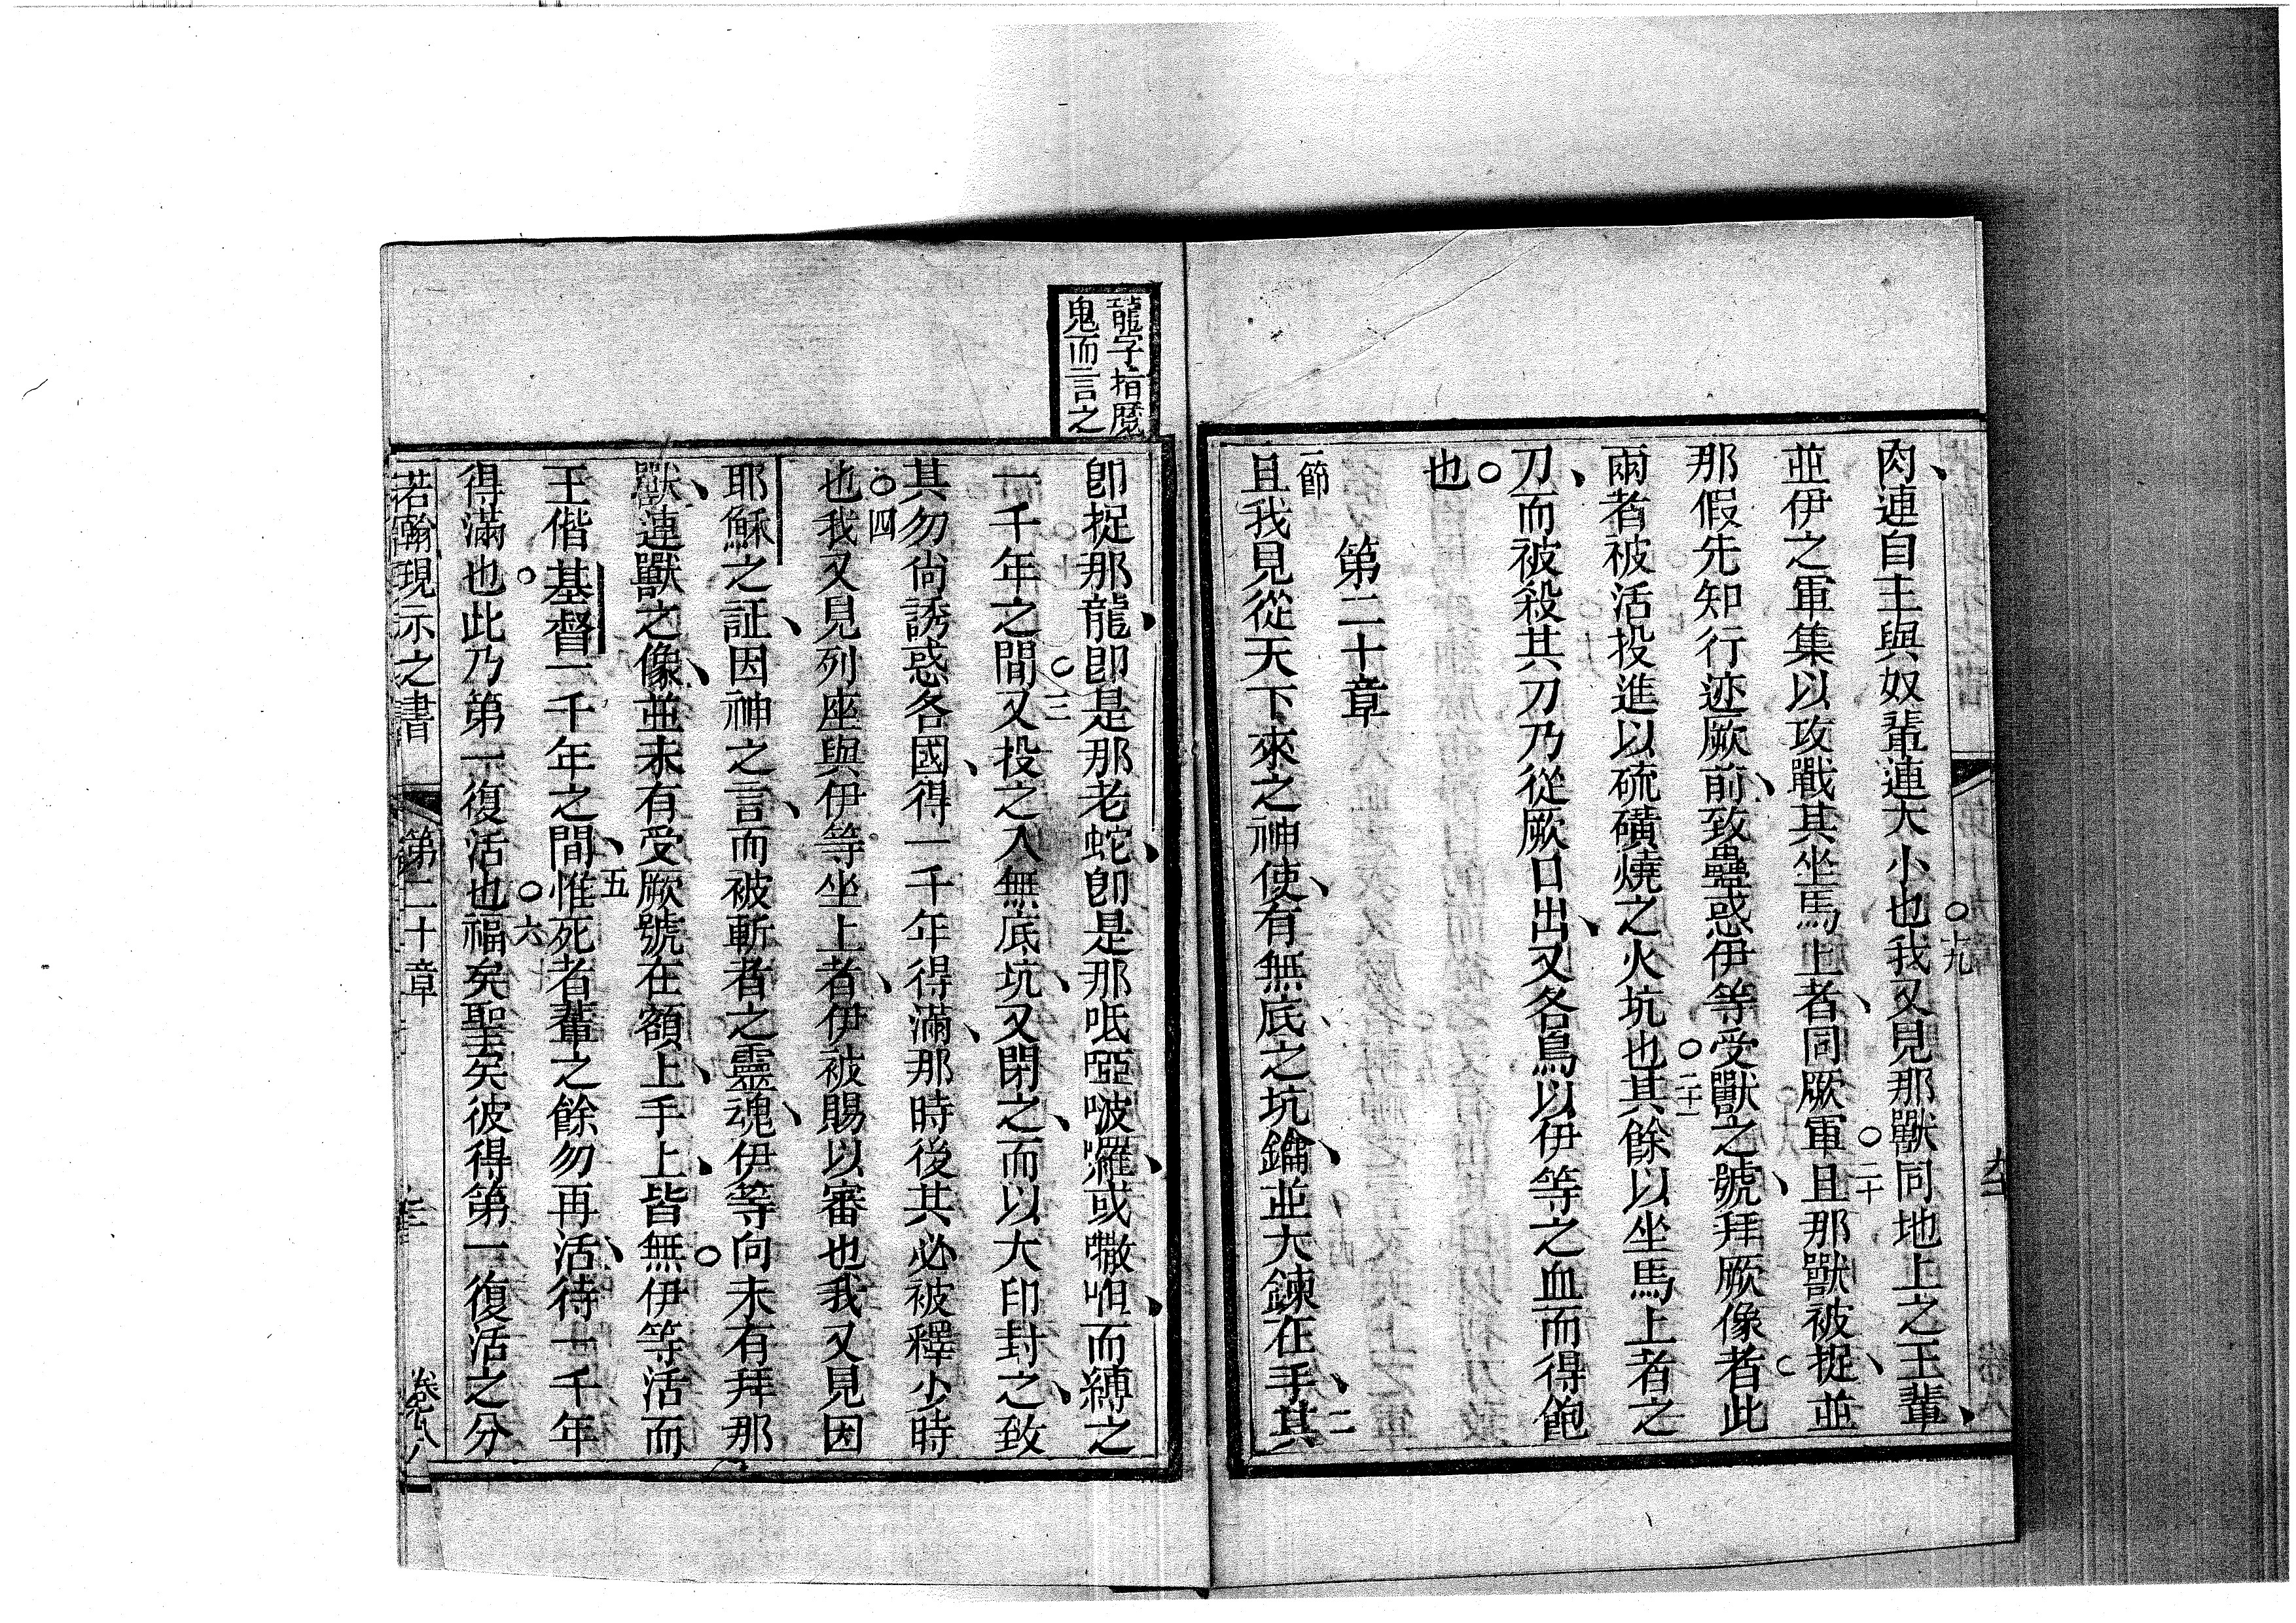 肉、連自主與奴輩連大小也○十九我又見那獸同地上之王輩、
並伊之軍集以攻戰其坐馬上者、同厥軍○二十且那獸被捉、並
那假先知行迹厥前、致蠱惑伊等受獸之號、拜厥像者○此
兩者被活投進以硫磺燒之火坑也○二十一其餘以坐馬上者之
刀、而被殺其刀乃從厥口出、又各鳥以伊等之血而得飽
也○
第二十章
一節且我見從天下來之神使、有無底之坑鑰、並大鍊在手、二其
龍字指魔
鬼而言之
即捉那龍、即是那老蛇、即是那呧啞啵囉、或𠹌呾、而縛之
一千年之間○三又投之入無底坑、又閉之、而以大印封之、致
其勿尙誘惑各國、得一千年得滿、那時後其必被釋少時
也○四我又見列座與伊等坐上者、伊被賜以審也我又見因
耶穌之証、因神之言、而被斬者之靈魂、伊等向未有拜那
獸、連獸之像、並未有受厥號在額上、手上、皆無○伊等活而
王偕基督一千年之間、五惟死者輩之餘勿再活、待一千年
得滿也○此乃第一復活也○六福矣聖矣彼得第一復活之分
若翰現示之書 第二十章 卷八